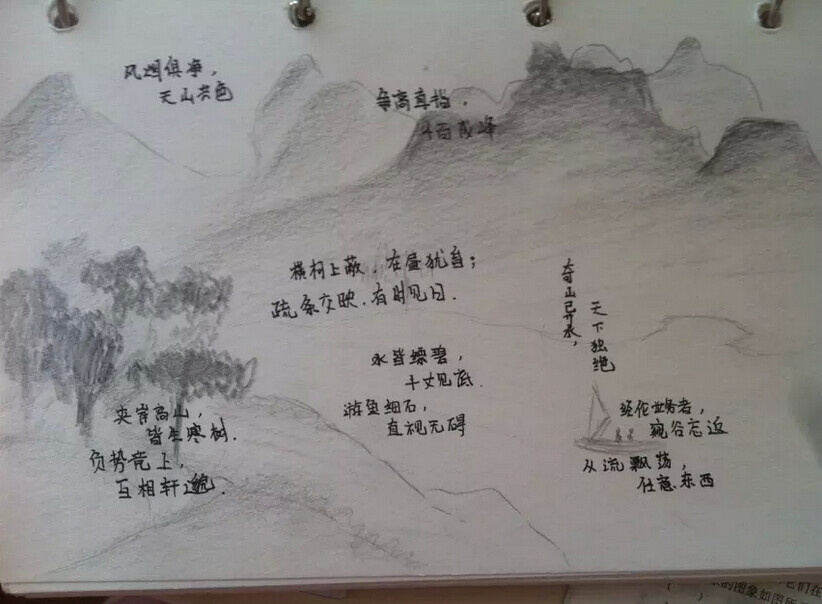 风烟俱净，
天山共色
争高直指，
千百成峰
横柯上蔽，在昼犹昏；
疏条交映，有时见日．
奇山异水，
天下独绝
水皆缥碧，
千丈见底．
游鱼细石，
直视无碍
夹岸高山，
皆生寒树．
负势竞上，
互相轩邈．
经伦世务者，
窥谷忘返
从流飘荡，
任意东西
们在
的图象如图所